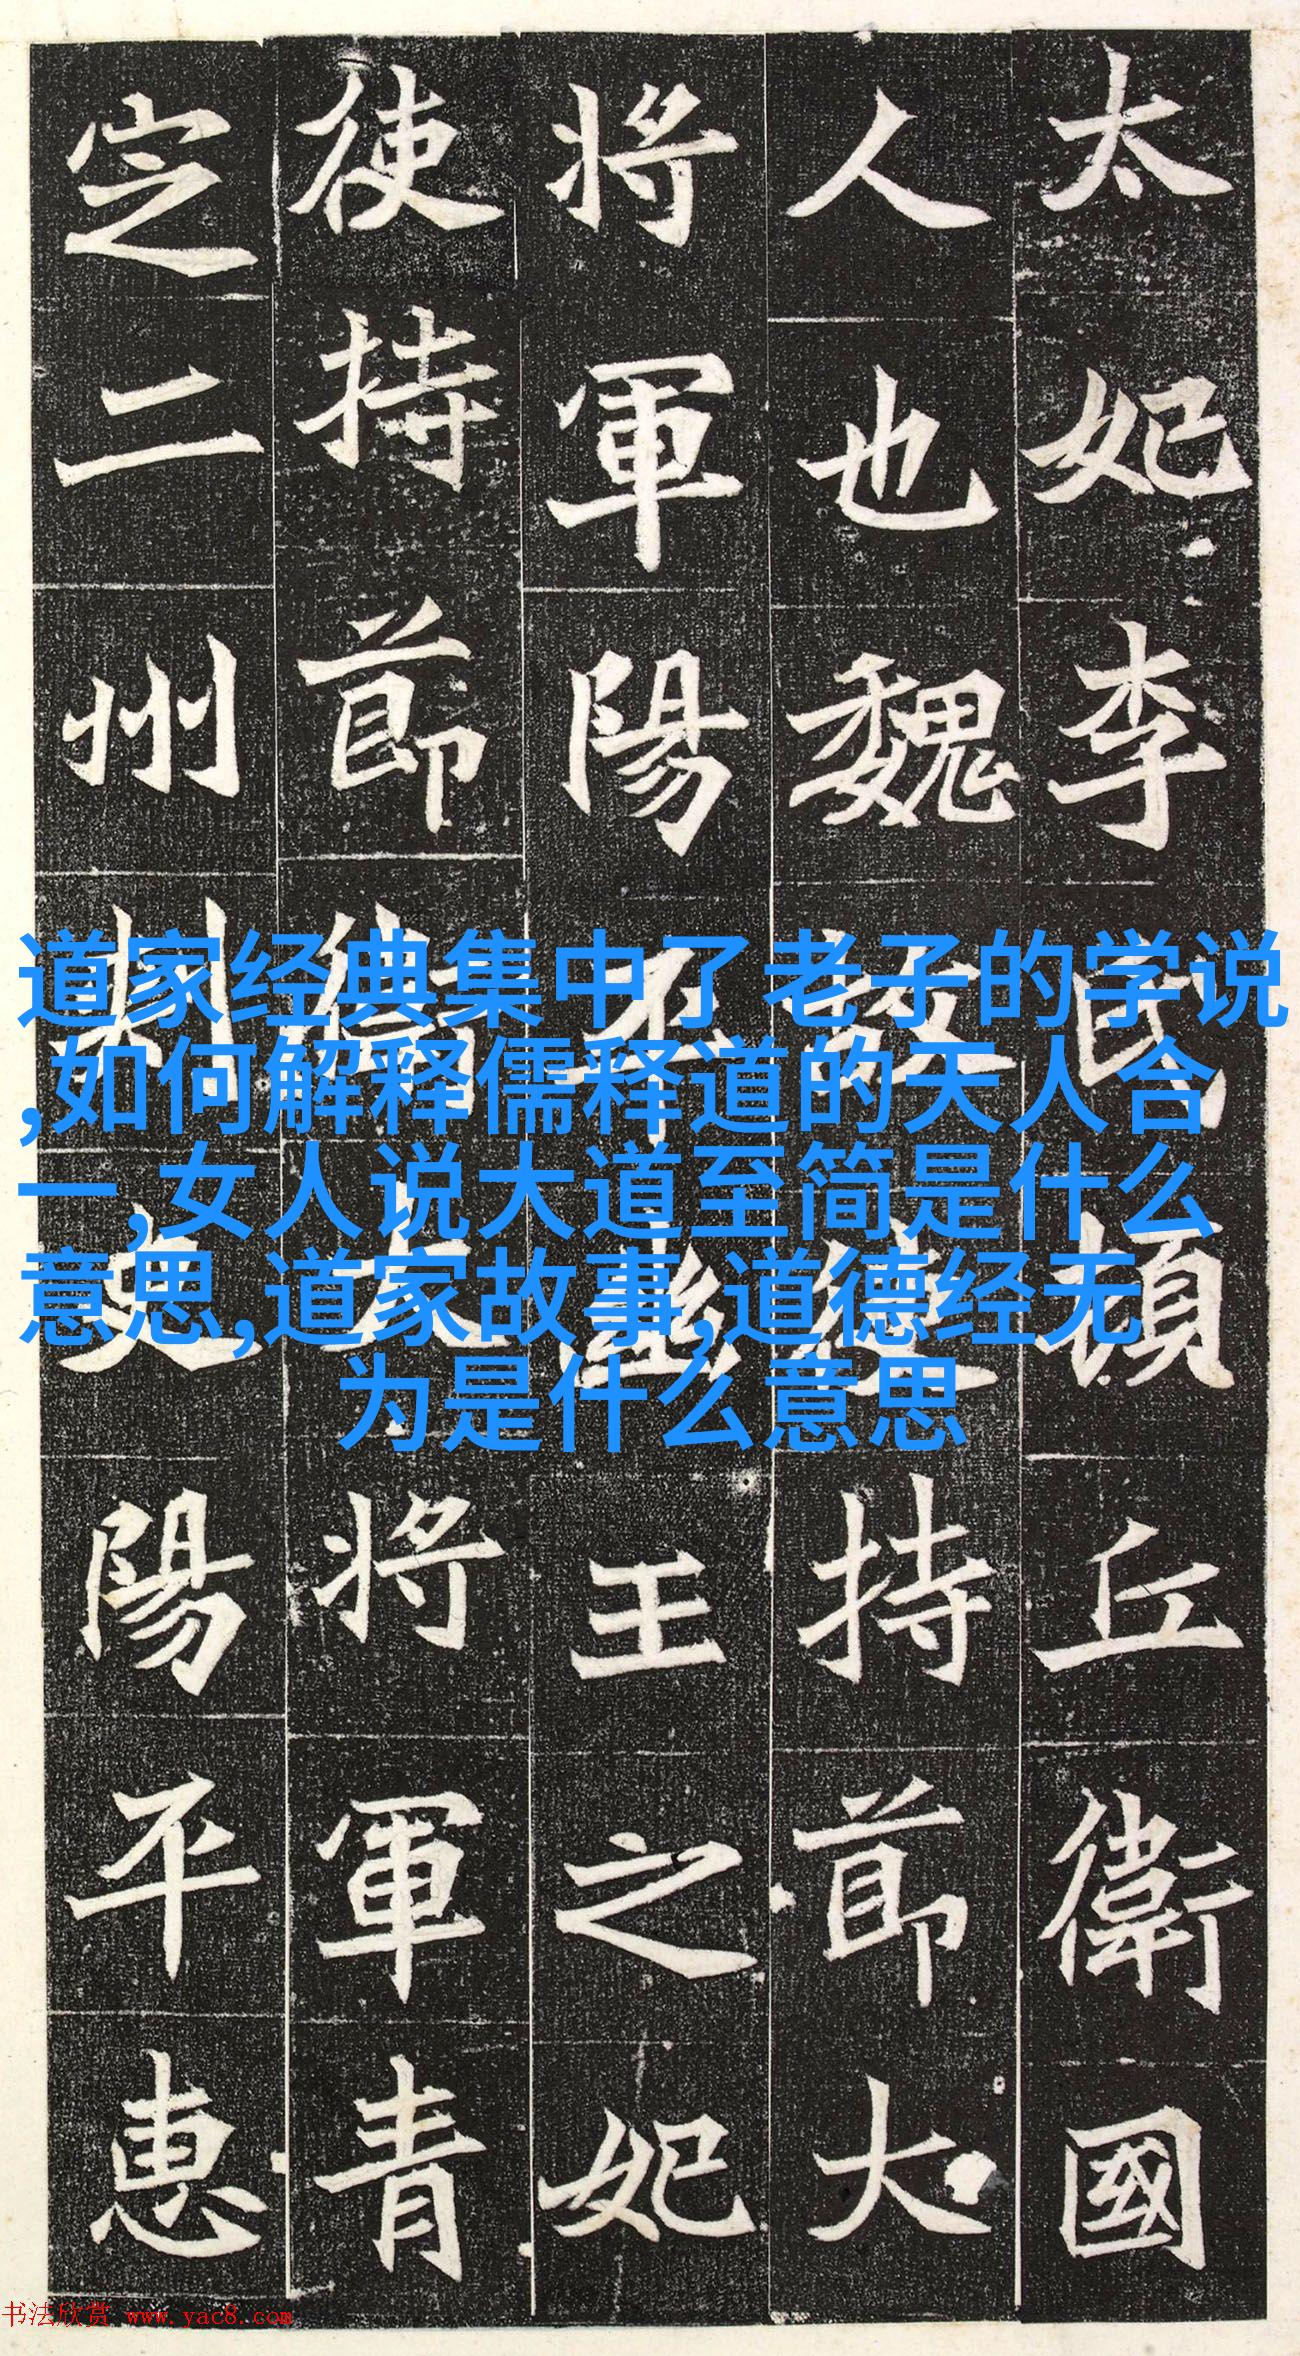 太妃李氏頓丘衛國
人也魏故使持節大
將軍陽平幽王之妃
使持節衛大將軍青
定二州刺史陽平惠
道家经典集中了老子的学说
,如何解释儒释道的天人合
一,女人说大道至简是什么
意思,道家故事,道德经无
为是什么意思
书法欣赏 www.yac8.com